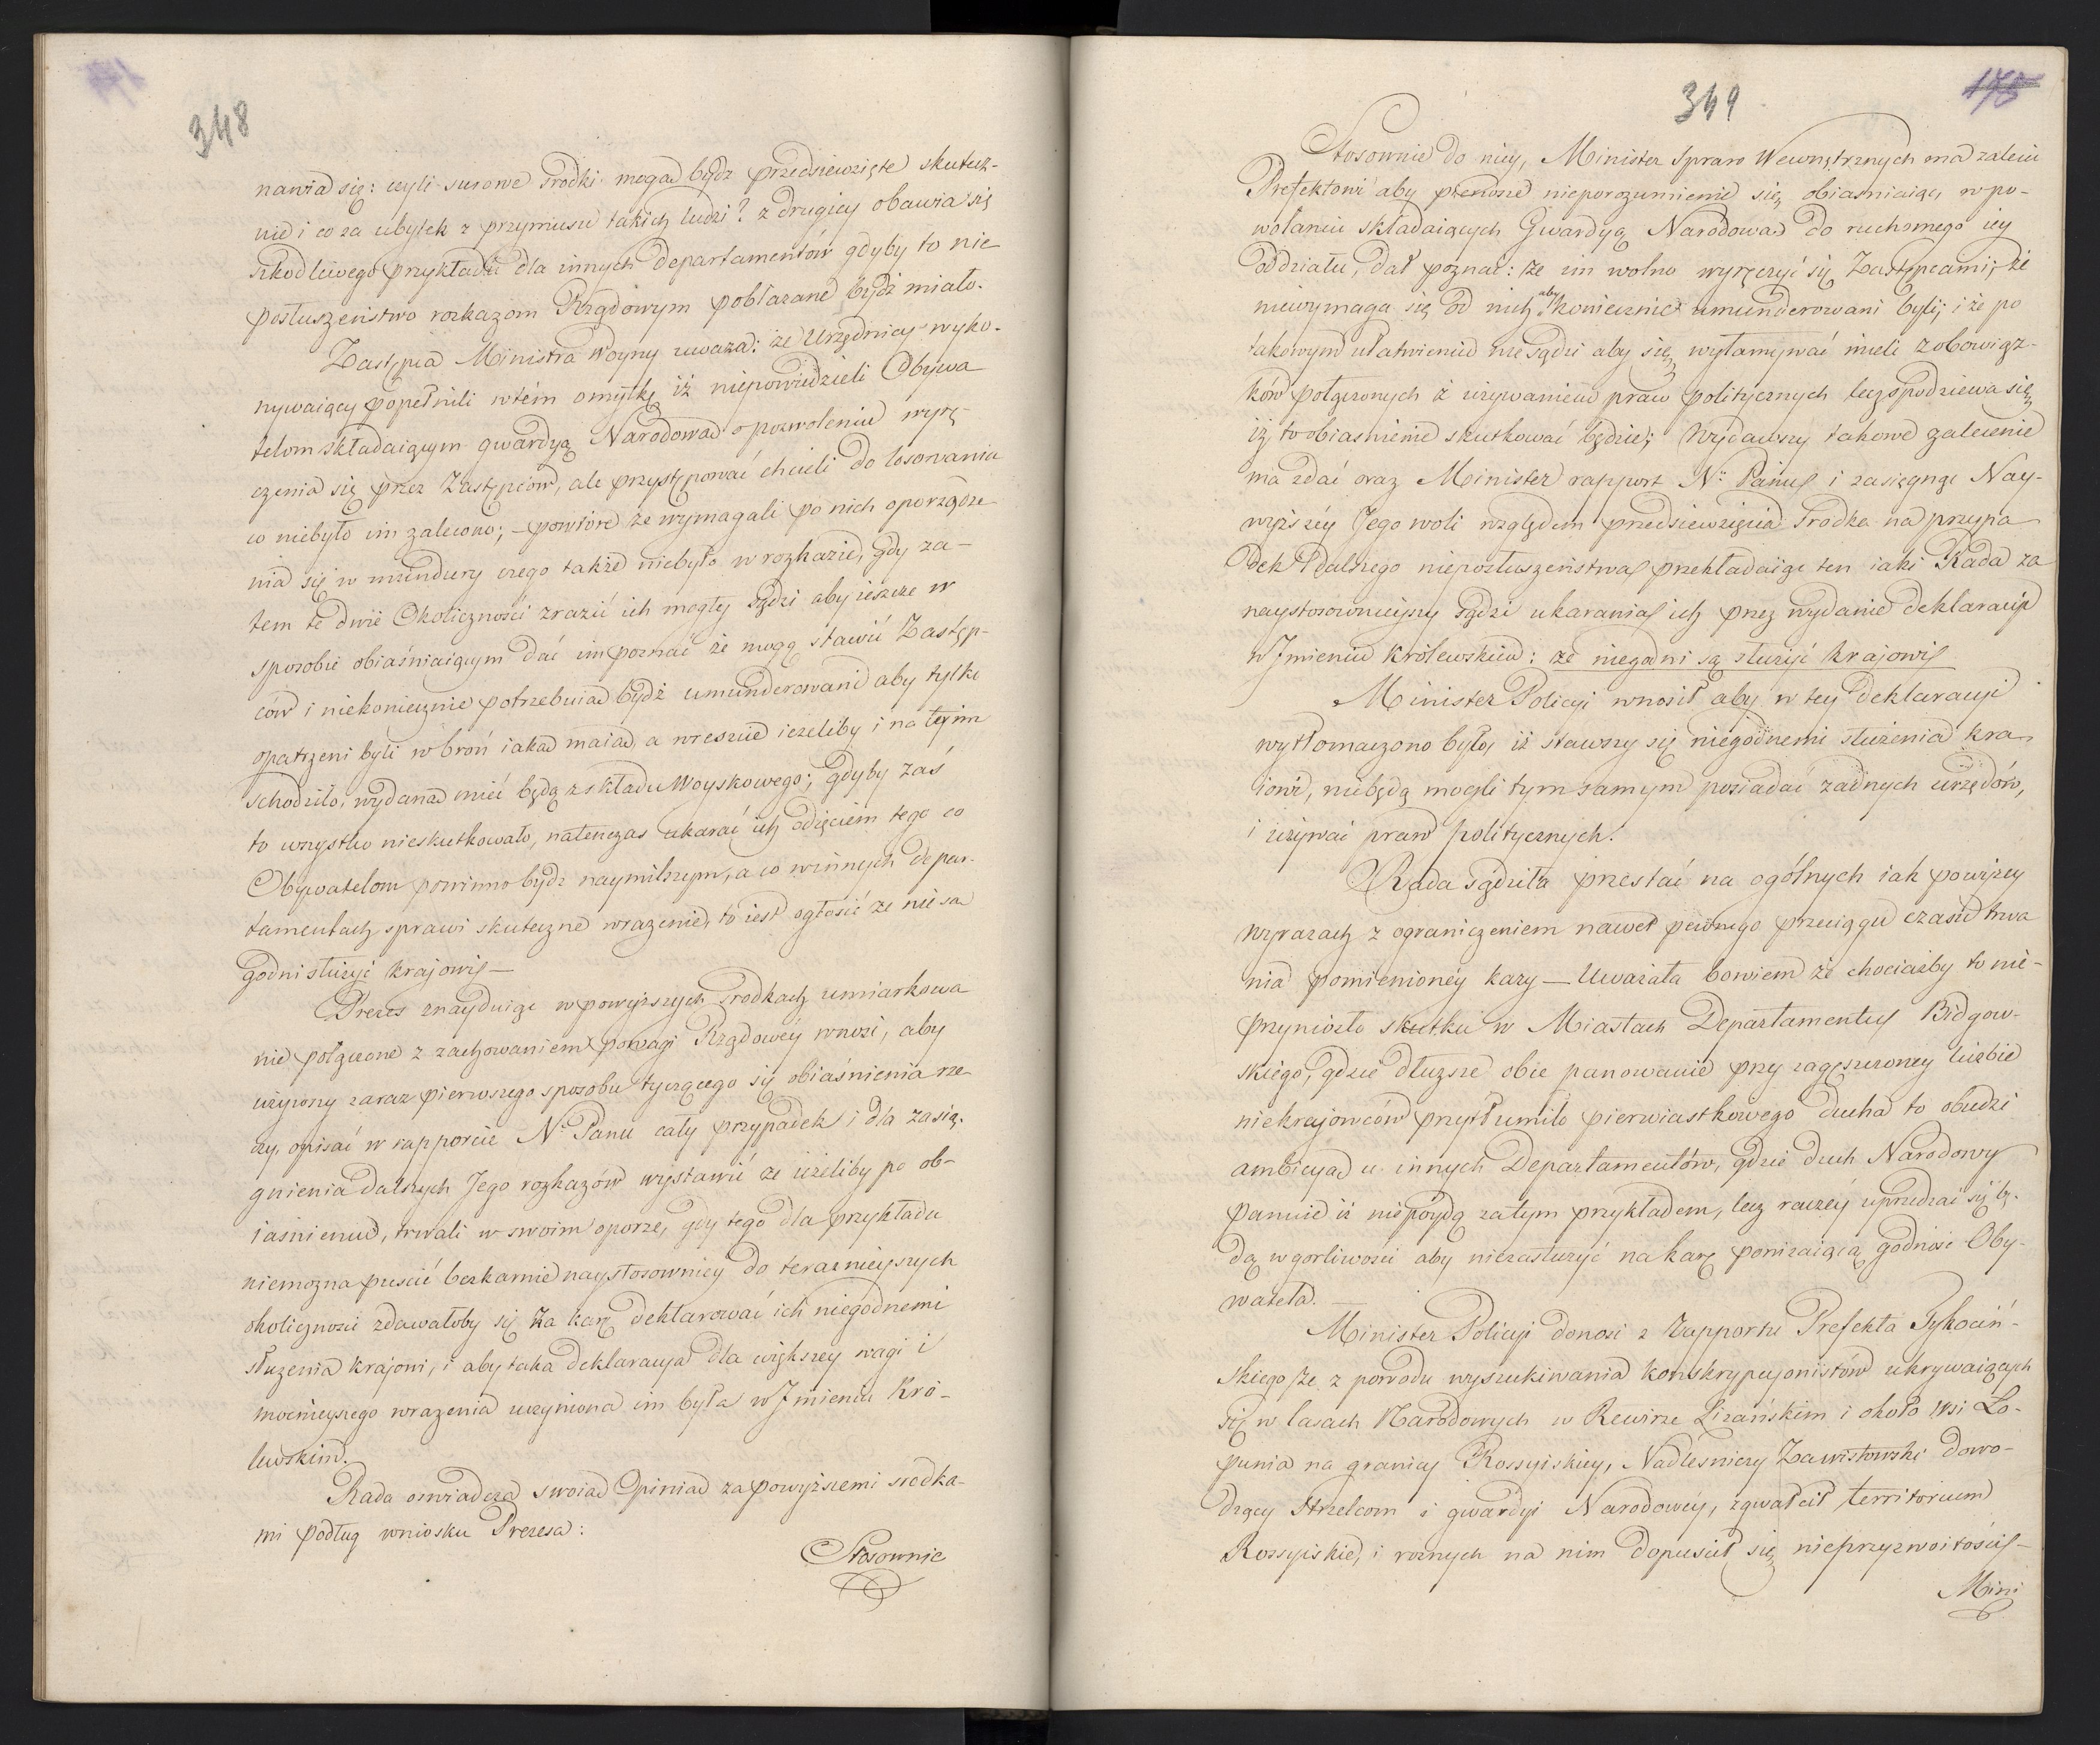 348
nawia się: czyli surowe srodki mogą bydz przedsiewzięte skutecz-
nie i co za ubytek z przymusu takich ludzi? z drugiey obawia się
szkodliwego przykładu dla innych departamentów gdyby to nie
posłuszeństwo rozkazom Rządowym pobłazane bydź miało.
Zastępca Ministra Woyny uwaza: że Urzędnicy wyko-
nywaiący popełnili w tém omyłkę iż niepowiedzieli Obywa
telom składaiącym gwardyą Narodową o pozwoleniu wyrę-
czenia się przez Zastępców, ale przystępować chcieli do losowania
co niebyło im zalecono; – powtóre że wymagali po nich oporządze
nia się w mundury czego także niebyło w rozkazie, gdy za-
tem te dwie Okoliczności zrazić ich mogły sądzi aby ieszcze w
sposobie obiaśniaiącym dać im poznać że mogą stawić Zastęp-
ców i niekoniecznie potrzebuią bydź umunderowani aby tylko
opatrzeni byli w broń iaką maią, a wreszcie ieżeliby i na tey im
schodziło, wydaną mieć będą z składu Woyskowego; gdyby zaś
to wszystko nieskutkowało, natenczas ukarać ich odięciem tego co
Obywatelom powinno bydz naymilszym, a co w innych depar-
tamentach sprawi skuteczne wrazenie, to iest ogłosić że nie są
godni służyć krajowi –
Prezes znayduiąc w powyższych srodkach umiarkowa
nie połączone z zachowaniem powagi Rządowey wnosi, aby
używszy zaraz pierwszego sposobu tyczącego się obiaśnienia rze
czy, opisać w rapporcie N: Panu cały przypadek i dla zasią-
gnienia dalszych Jego rozkazów wystawić że ieżeliby po ob-
iaśnieniu, trwali w swoim oporze, gdy tego dla przykładu
niemozna puścić bezkarnie naystosowniey do teraznieyszych
okoliczności zdawałoby się za karę deklarować ich niegodnemi
służenia krajowi, i aby taka deklaracya dla większey wagi i
mocnieyszego wrazenia uczyniona im była w Jmieniu Kró-
lewskim.
Rada oswiadcza swoią Opinią za powyższemi srodka-
mi podług wniosku Prezesa:
Stosownie
349
Stosownie do niey, Minister Spraw Wewnętrznych ma zalecić
Prefektowi aby pierwsze nieporozumienie się obiasniaiąc, w po-
wołaniu składaiących Gwardyą Narodową do ruchomego iey
oddziału, dał poznać: że im wolno wyręczyć się Zastępcami; że
niewymaga się od nich aby koniecznie umunderowani byli; i że po
takowym ułatwieniu nie sądzi aby się wyłamywać mieli z obowiąz-
ków połączonych z używaniem praw politycznych lecz spodziewa się
iż to obiasnienie skutkować będzie; Wydawszy takowe zalecenie
ma zdać oraz Minister rapport N: Panu i zasięgnąć Nay-
wyższéy Jego woli względem przedsiewzięcia srodka na przypa
dek dalszego nieposłuszeństwa przekładaiąc ten iaki Rada za
naystosownieyszy sądzi ukarania ich przez wydanie deklaracyi
w Jmieniu Królewskim: że niegodni są służyć krajowi
Minister Policyi wnosił aby w tey deklaracyi
wytłomaczono było, iż stawszy się niegodnemi służenia kra
iowi, niebędą mogli tym samym posiadać żadnych urzędów,
i używać praw politycznych.
Rada sądziła przestać na ogólnych iak powyzey
wyrazach z ograniczeniem nawet pewnego przeciągu czasu trwa
nia pomienionéy kary – Uważała bowiem że chociażby to nie-
przyniosło skutku w Miastach Departamentu Bidgow-
skiego, gdzie dłuzsze obce panowanie przy zagęszczoney liczbie
niekrajowców przytłumiło pierwiastkowego ducha to obudzi
ambicyą u innych Departamentów, gdzie duch Narodowy
panuie iż nie póydą za tym przykładem, lecz raczéy uprzedzać się bę-
dą w gorliwości aby niezasłużyć na karę ponizaiącą godność Oby-
watela. –
Minister Policyi donosi z Rapportu Prefekta Tykociń-
skiego że z powodu wyszukiwania konskrypcyonistów ukrywaiących
się w lasach Narodowych w Rewirze Lizańskim i około wsi Ło-
punia na granicy Rossyiskiey, Nadleśniczy Zawistowski dowo-
dzący Strzelcom i gwardyi Narodowéy, zgwałcił territorium
Rossyiskie, i roznych na nim dopuscił się nieprzyzwoitości –
Mini